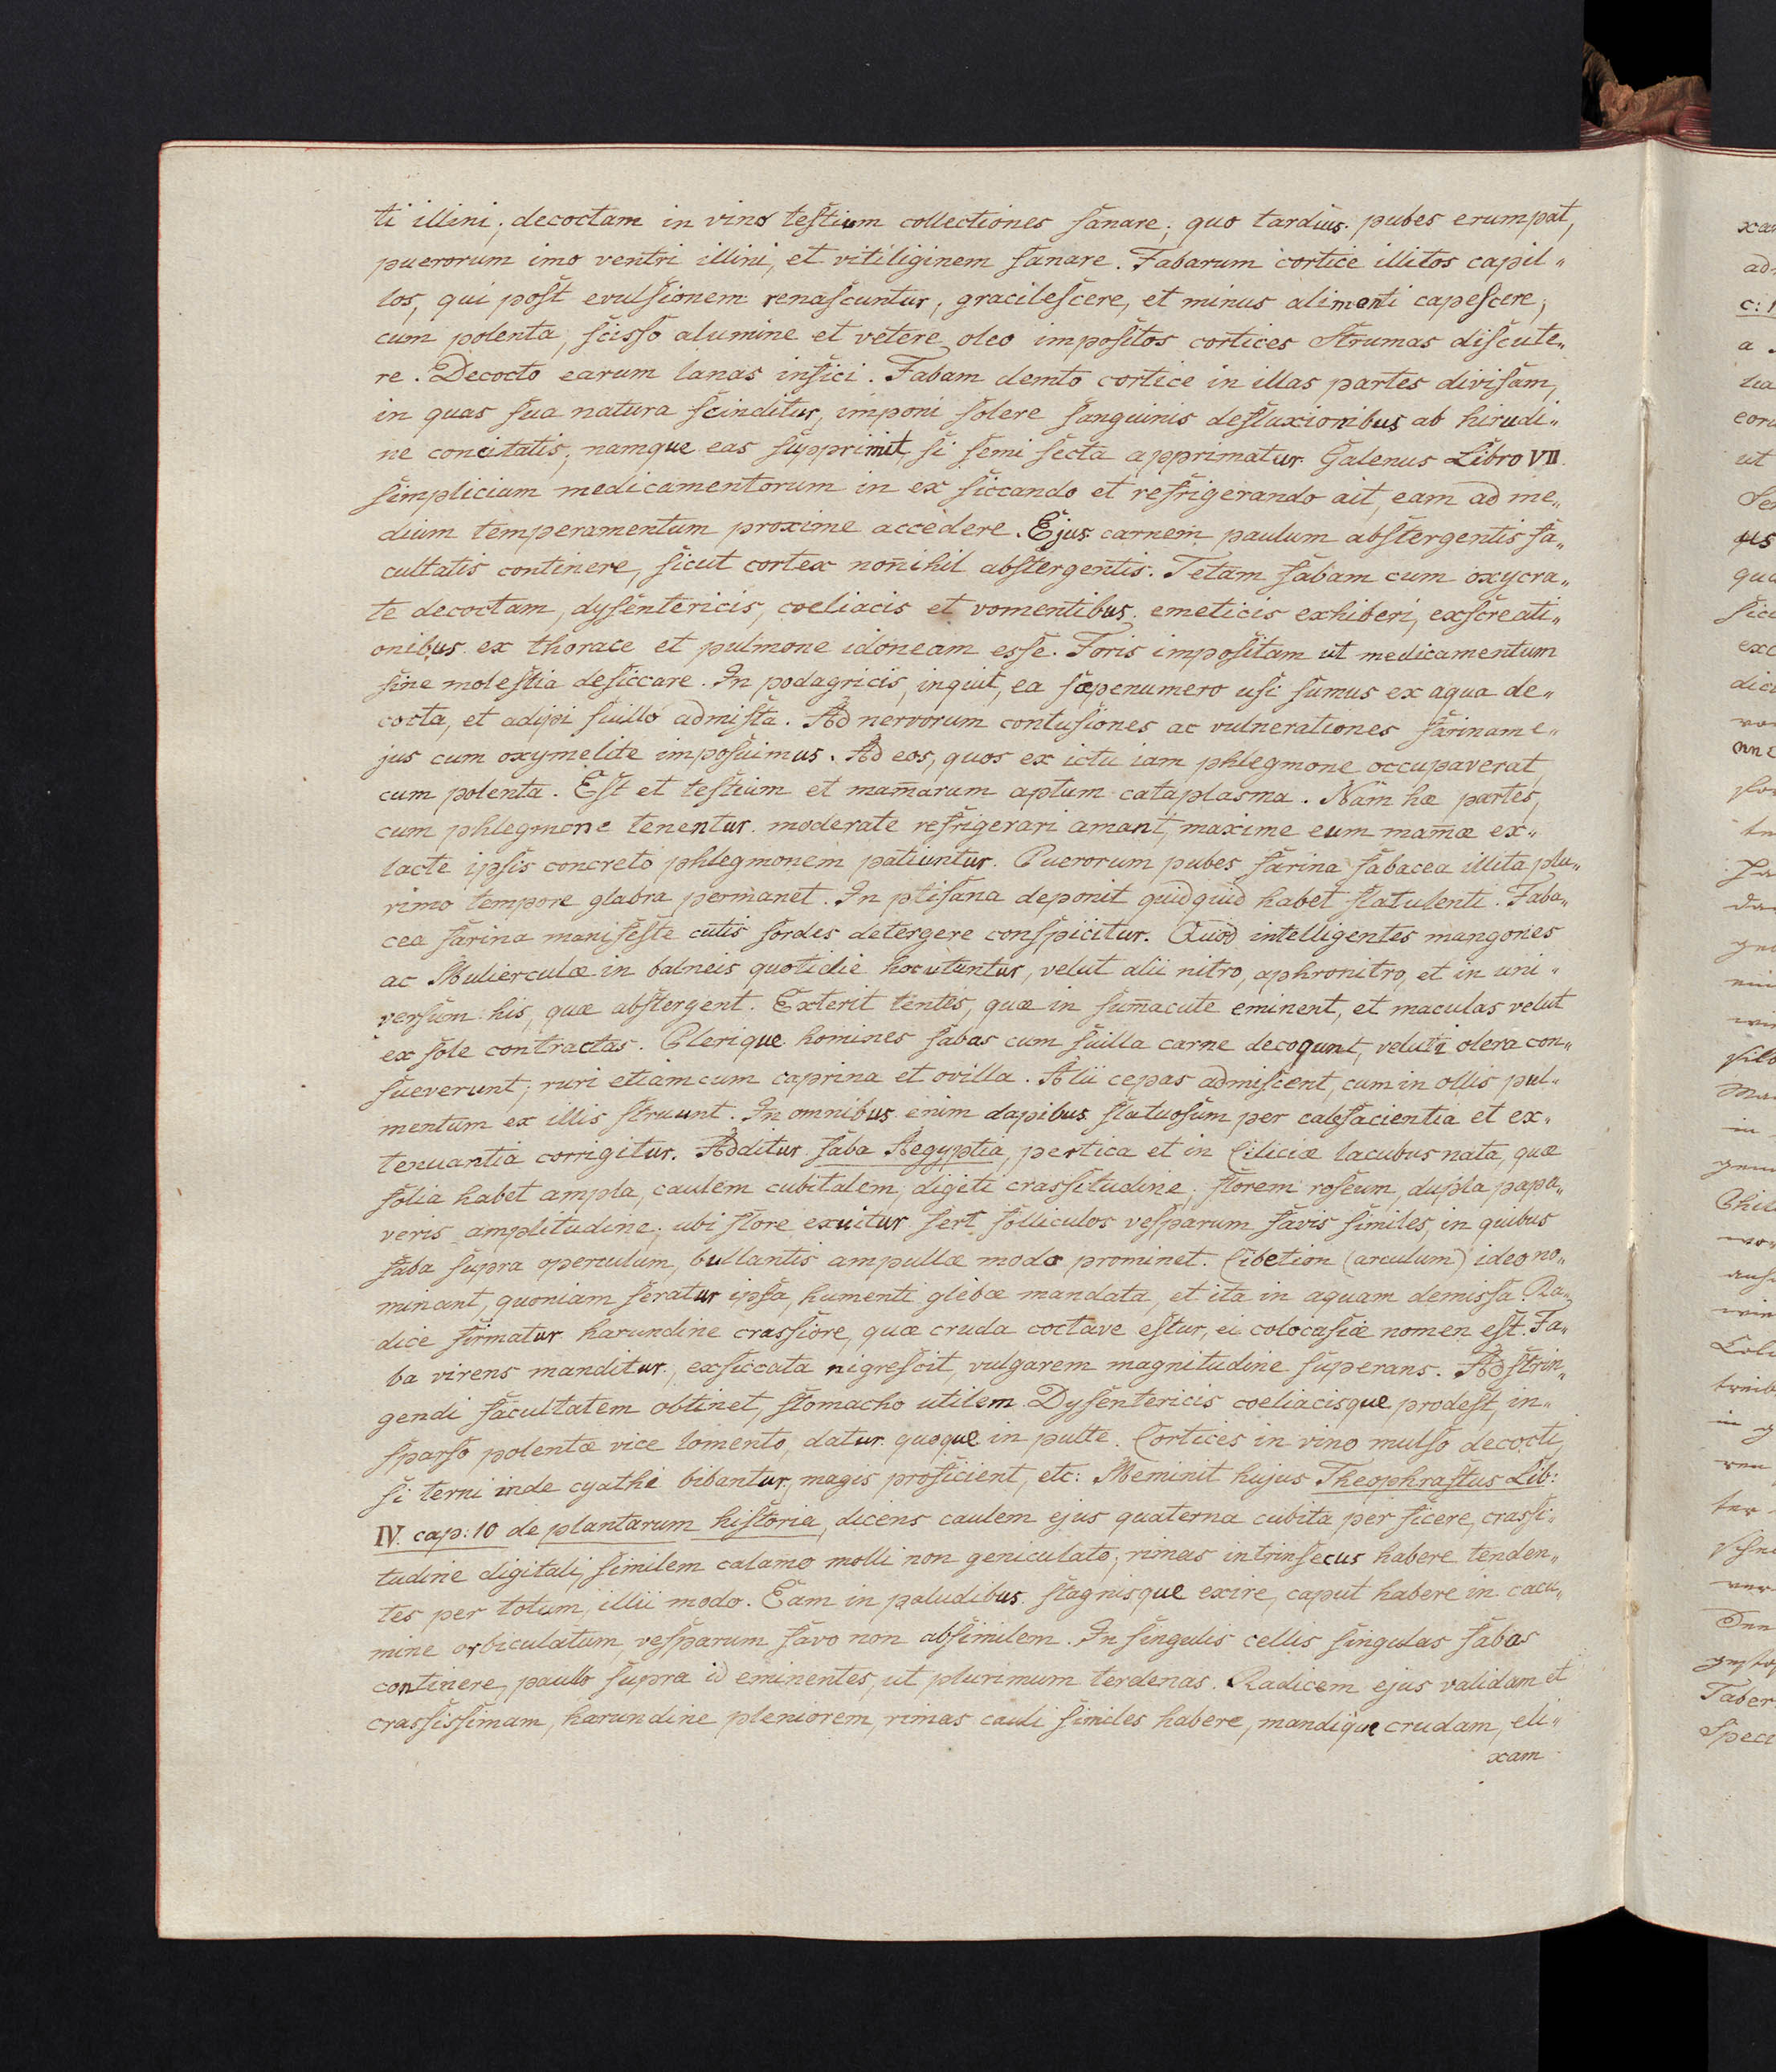 ti illini; decoctam in vino teſtium collectiones ſanare; quo tardius pubes erumpat,
puerorum imo ventri illini, et vitiliginem ſanare. Fabarum cortice illitos capil„
los, qui poſt evulſionem renaſcuntur, gracileſcere, et minus alimenti capeſcere,
cum polenta, ſciſso alumine et vetere oleo impoſitos cortices Strumas diſcute„
re. Decocto earum lanas infici. Fabam demto cortice in illas partes diviſam,
in quas ſua natura ſcinditur, imponi ſolere ſanguinis defluxionibus ab hirudi„
ne concitatis; namque eas ſupprimit, ſi ſemi ſecta apprimatur. Galenus Libro VII.
ſimplicium medicamentorum in ex ſiccando et refrigerando ait, eam ad me„
dium temperamentum proxime accedere. Ejus carnem paulum abſtergentis fa„
cultatis continere, ſicut cortex nonihil abſtergentis. Tetam fabam cum oxycra„
te decoctam, dyſentericis, coeliacis et vomentibus, emeticis exhiberi, exſcreati„
onibus ex thorace et pulmone idoneam eſse. Foris impoſitam ut medicamentum
ſine moleſtia deſiccare. In podagricis, inquit, ea ſæpenumero uſi ſumus ex aqua de„
cocta, et adipi ſuillo admiſta. Ad nervorum contuſiones ac vulnerationes farinam e„
jus cum oxymelite impoſuimus. Ad eos, quos ex ictu iam phlegmone occupaverat,
cum polenta. Eſt et teſtium et mam̅arum aptum cataplasma. Nam hæ partes,
cum phlegmone tenentur moderate refrigerari amant, maxime cum mam̅æ ex„
lacte ipſis concreto phlegmonem patiuntur. Puerorum pubes farina fabacea illita plu„
rimo tempore glabra permanet. In ptiſana deponit quidquid habet flatulenti. Faba„
cea farina manifeſte cutis ſordes detergere conſpicitur. Quod intelligentes mangones
ac Mulierculæ in balneis quotidie hoc utuntur, velut alii nitro, aphronitro, et in uni„
verſum his, quæ abſtergent. Exterit tentes, quæ in ſum̅a cute eminent, et maculas velut
ex ſole contractas. Plerique homines fabas cum ſuilla carne decoqunt, veluti olera con„
ſueverunt; ruri etiam cum caprina et ovilla. Alii cepas admiſcent, cum in ollis pul„
mentum ex illis ſtruunt. In omnibus enim dapibus flatuoſum per calefacientia et ex„
tenuantia corrigitur. Additur faba Aegyptia, pertica et in Ciliciæ lacubus nata, quæ
folia habet ampla, caulem cubitalem, digiti craſsitudine, florem roſeum, dupla papa„
veris amplitudine; ubi flore exuitur fert folliculos veſparum favis ſimiles, in quibus
faba ſupra operculum, bullantis ampullæ modo prominet. Cibetion (arculum) ideo no„
minant, quoniam ſeratur ipſa, humenti glebæ mandata, et ita in aquam demiſsa. Ra„
dice firmatur harundine craſsiore, quæ cruda coctave eſtur, ei colocaſiæ nomen eſt. Fa„
ba virens manditur, exſiccata nigreſcit, vulgarem magnitudine ſuperans. Adſtrin„
gendi facultatem obtinet, ſtomacho utilem. Dyſentericis coeliacisque prodeſt, in„
ſparſo polentæ vice lomento, datur quoque in pulte. Cortices in vino mulſo decocti,
ſi terni inde cyathi bibantur, magis proficient, etc: Meminit hujus Theophraſtus Lib:
IV. cap: 10 de plantarum hiſtoria, dicens caulem ejus quaterna cubita perficere, craſsi„
tudine digitali, ſimilem calamo molli non geniculato; rimas intrinſecus habere tenden„
tes per totum, illii modo. Eam in paludibus ſtagnisque exire, caput habere in cacu„
mine orbiculatum, veſparum favo non abſimilem. In ſingulis cellis ſingulas fabas
continere, paullo ſupra id eminentes, ut plurimum terdenas. Radicem ejus validam et
craſsiſsimam, harundine pleniorem, rimas cauli ſimiles habere, mandique crudam, eli„
xam